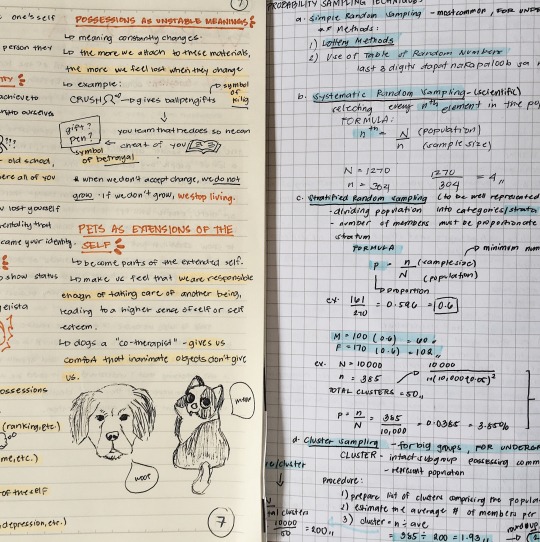 one's self
person they
achieve to
into ourselves
???
- old school,
ere all of you
v lost yourself
mentality that
came your identity.
o show status
elista
ossessions
(ranking, etc.)
me, etc.)
of the self
depression, etc.)
7
POSSESSIONS AS UNSTABLE MEANINGS
meaning constantly changes.
the more we attach to these materials,
the more we feel lost when they change
example:
symbol of kilig
CRUSH gives ballpen gifts
gift? pen?
symbol of betrayal
you learn that he does so he can
cheat of you
* when we don't accept change, we do not
grow. If we don't grow, we stop living.
PETS AS EXTENSIONS OF THE
SELF
become parts of the extended self.
make us feel that we are responsible
enough of taking care of another being,
leading to a higher sense of self or self
esteem.
dogs a "co-therapist" - gives us
comfort that inanimate objects don't give
us.
meow
woof
7
PROBABILITY SAMPLING TECHNIQUES
a. Simple Random Sampling - most common, FOR UNDE
** Methods:
1) Lottery Methods
2) Use of Table of Random Numbers
last 3 digits dapat nakapaloob sa
b. Systematic Random Sampling - (scientific)
selecting every nth element in the pop
FORMULA:
nth = N (population)
n (sample size)
N = 1270
n = 304
1270
304 = 4
c. Stratified Random Sampling (to be well represented
- dividing population into categories/strata
- number of members must be proportionate
stratum
FORMULA
minimum num
P = n (sample size)
N (population)
proportion
ex. 161
270 = 0.596 = 0.6
M = 100 (0.6) = 60
F = 170 (0.6) = 102
ex. N = 10000
n = 385
10 000
1+(10,000)(0.05)²
TOTAL CLUSTERS = 50
P = n = 385 = 0.0385 = 3.85%
N 10,000
d. Cluster Sampling - for big groups, FOR UNDERGR
CLUSTER - intact subgroup possessing comm
- relevant population
Procedure:
1) prepare list of clusters comprising the popula
2) estimate the average # of members per
3) cluster = n ÷ ave
= 385 ÷ 200 = 1.93
round up
ve/cluster
N
total clusters
10000
50 = 200